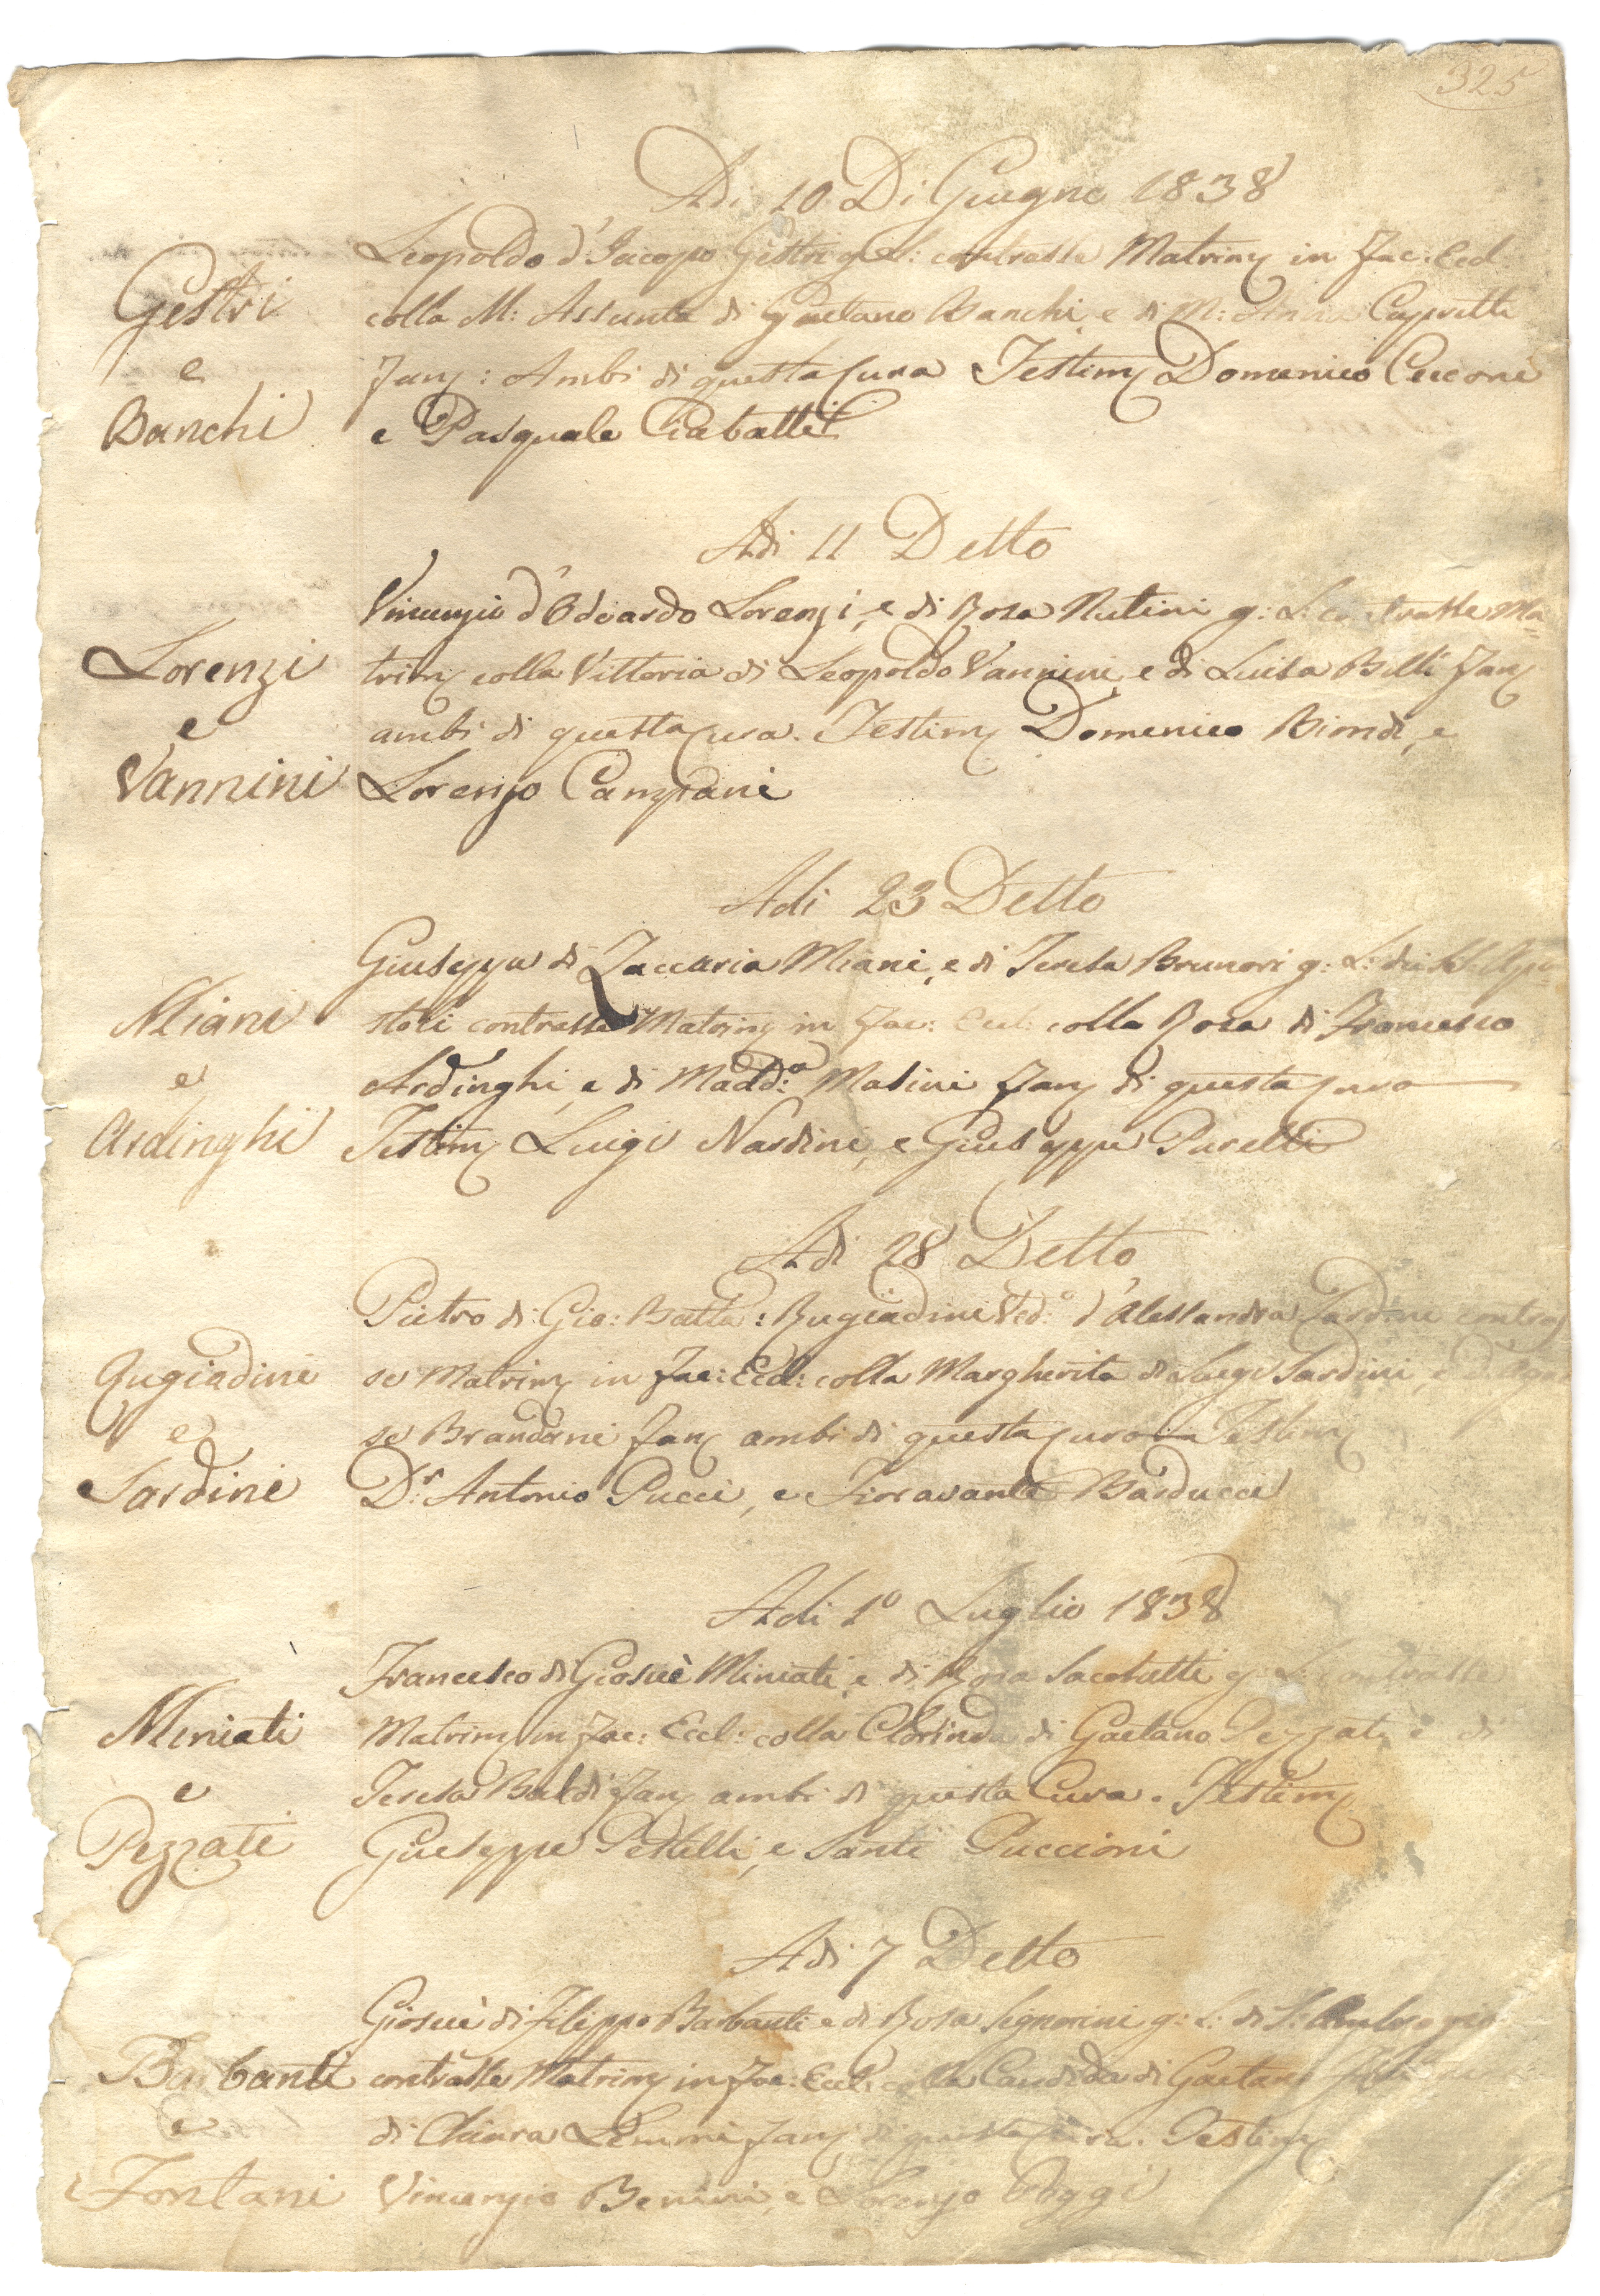 325
Adi 10 Di Giugno 1838
Leopoldo d'Iacopo Gestri g: L: contrasse Matrim in Fac: Eccl
Gestri colla M: Assunta di Gaetano Banchi, e di M: Anna Capretti
e Fan: Ambi di questa Cura Testim Domenico Cecconi
Banchi e Pasquale Ciabatti
Adi 11 Detto
Vincenzio d'Odoardo Lorenzi, e di Rosa Nutini g: L: contrasse Ma=
Lorenzi trim colla Vittoria di Leopoldo Vannini, e di Luisa Billi Fan
e ambi di questa Cura. Testim Domenico Biondi, e
Vannini Lorenzo Campani
Adi 23 Detto
Giuseppe di Zaccaria Miani, e di Teresa Brunori g: L: dei SS. Apo=
Miani stoli contrasse Matrim in Fac: Eccl: colla Rosa di Francesco
e Ardinghi, e di Madd:a Masini Fan di questa Cura
Ardinghi Testim Luigi Nardini, e Giuseppe Paretti
Adi 28 Detto
Pietro di Gio: Batta: Bugiadini Ved:o d'Alessandra contras
Bugiadini se Matrim in Fac: Eccl: colla Margherita di Luigi Sardini, e d'Agne
e se Brandani Fan ambi di questa Cura Testim
Sardini D:r Antonio Pucci, e Fioravante Barducci
Adi 1o Luglio 1838
Francesco di Giosuè Miniati, e di Rosa Sacchetti g: L: contrasse
Miniati Matrim in Fac: Eccl: colla Clorinda di Gaetano Pezzati, e di
e Teresa Baldi Fan ambi di questa Cura. Testim
Pezzati Giuseppe Pestelli, e Santi Puccioni
Adi 7 Detto
Giosuè di Filippo Barbanti e di Rosa Signorini g: L: di S: Ambrogio
Barbanti contrasse Matrim in Fac: Eccl: colla Candida di Gaetano
e di Chiara Lemmi Fan di questa Cura. Testim
Fontani Vincenzio Benini, e Lorenzo Poggi